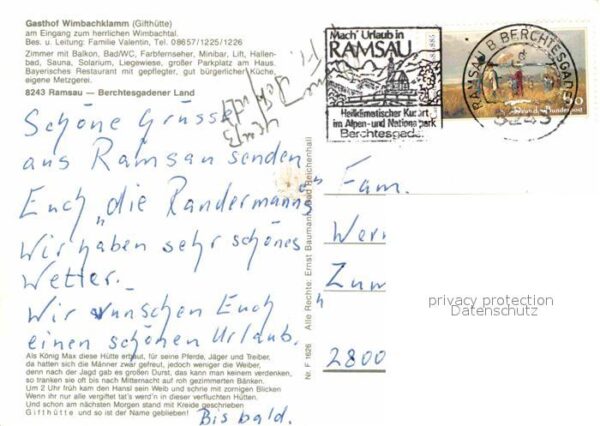 Gasthof Wimbachklamm (Gifthütte)
am Eingang zum herrlichen Wimbachtal.
Bes. u. Leitung: Familie Valentin, Tel. 08657/1225/1226
Zimmer mit Balkon, Bad/WC, Farbfernseher, Minibar, Lift, Hallen-
bad, Sauna, Solarium, Liegewiese, großer Parkplatz am Haus.
Bayerisches Restaurant mit gepflegter, gut bürgerlicher Küche,
eigene Metzgerei.
8243 Ramsau — Berchtesgadener Land
Schöne Grüsse
aus Ramsau senden
Euch „die Randermanns
Wir haben sehr schönes
Wetter.
Wir wünschen Euch
einen schönen Urlaub.
Als König Max diese Hütte erbaut, für seine Pferde, Jäger und Treiber,
da hatten sich die Männer zwar gefreut, jedoch weniger die Weiber,
denn nach der Jagd gab es großen Durst, das kann man keinem verdenken,
so tranken sie oft bis nach Mitternacht auf roh gezimmerten Bänken.
Um 2 Uhr früh kam den Hansl sein Weib und schrie mit zornigen Blicken
Wenn ihr nur alle vergiftet tat's werd'n in dieser verfluchten Hütten.
Und schon am nächsten Morgen stand mit Kreide geschrieben
Gifthütte und so ist der Name geblieben!
Bis bald.
Nr. F 1626 Alle Rechte: Ernst Baumann, Bad Reichenhall
Mach' Urlaub in
RAMSAU
Heilklimatischer Kurort
im Alpen- und Nationalpark
Berchtesgaden
RAMSAU B BERCHTESGADEN
8243
Fam.
Wern
Zum
2800
privacy protection
Datenschutz